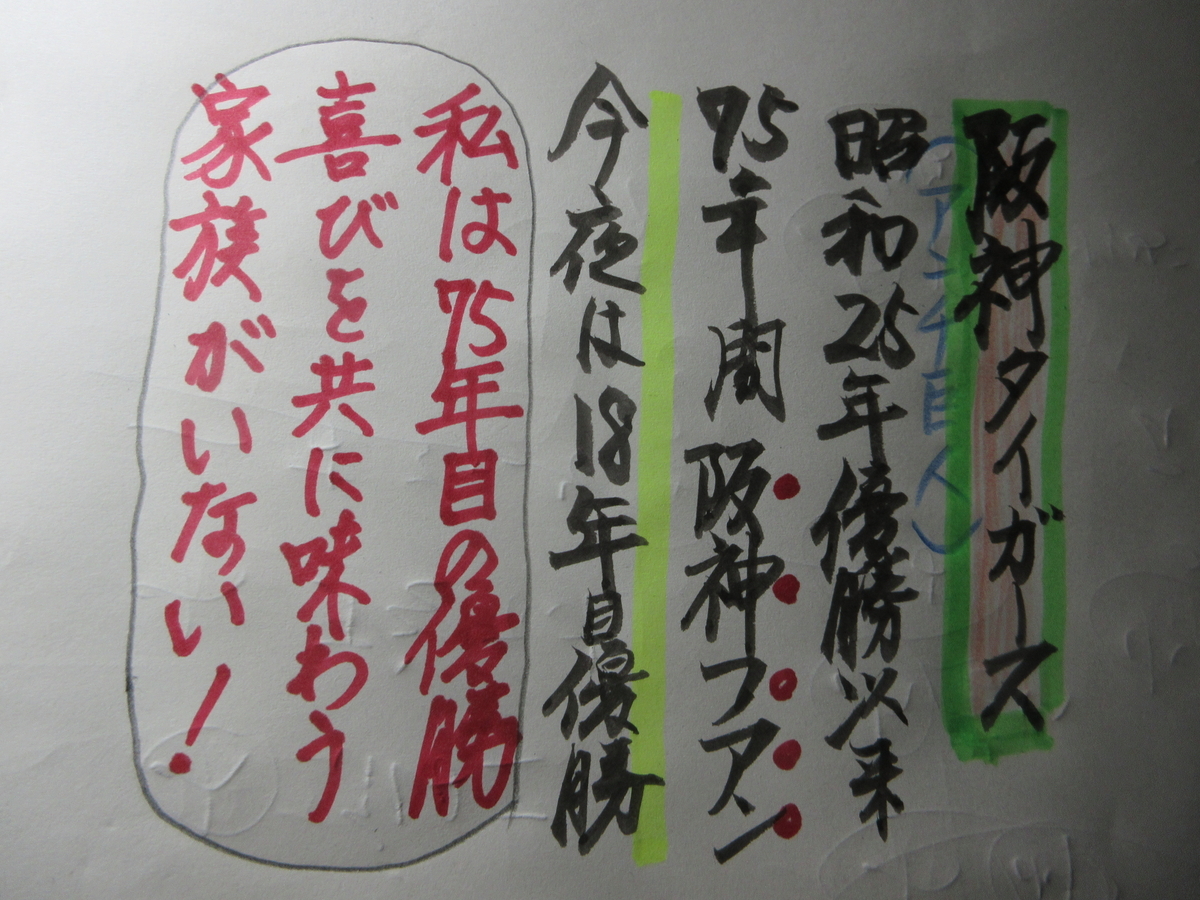 阪神タイガース
(アンチ巨人)
昭和25年優勝以来
75年間阪神ファン
今夜は18年目優勝
私は75年目の優勝
喜びを共に味わう
家族がいない!